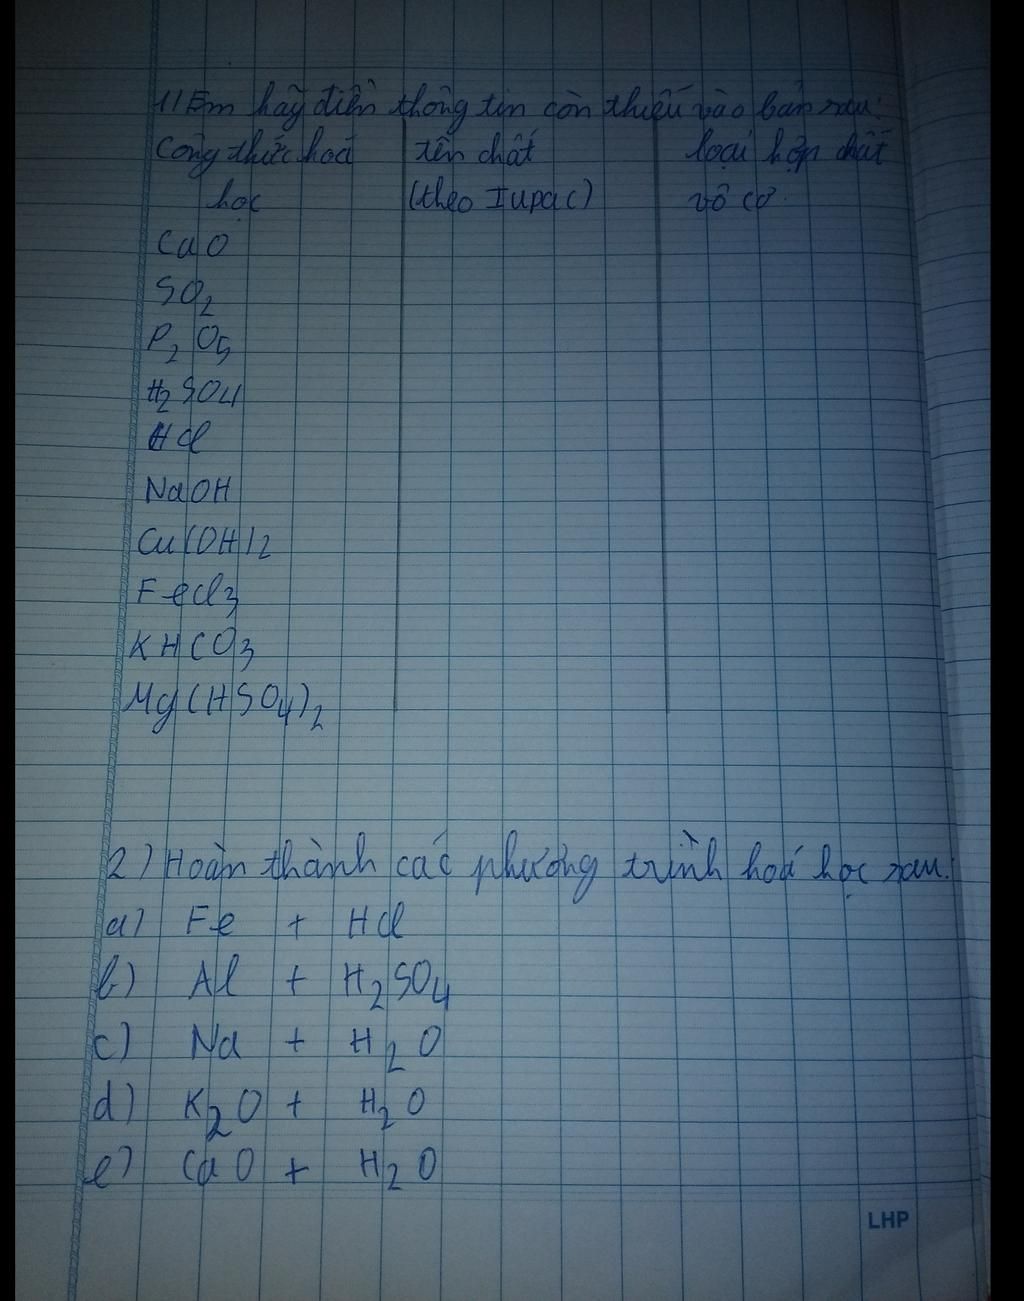 1) Em hãy điền thông tin còn thiếu vào bản sau:
Công thức hoá học | tên chất (theo Iupac) | loại hợp chất vô cơ.
CaO
SO2
P2O5
H2SO4
HCl
NaOH
Cu(OH)2
FeCl3
KHCO3
Mg(HSO4)2
2) Hoàn thành các phương trình hoá học sau:
a) Fe + HCl
b) Al + H2SO4
c) Na + H2O
d) K2O + H2O
e) CaO + H2O
LHP